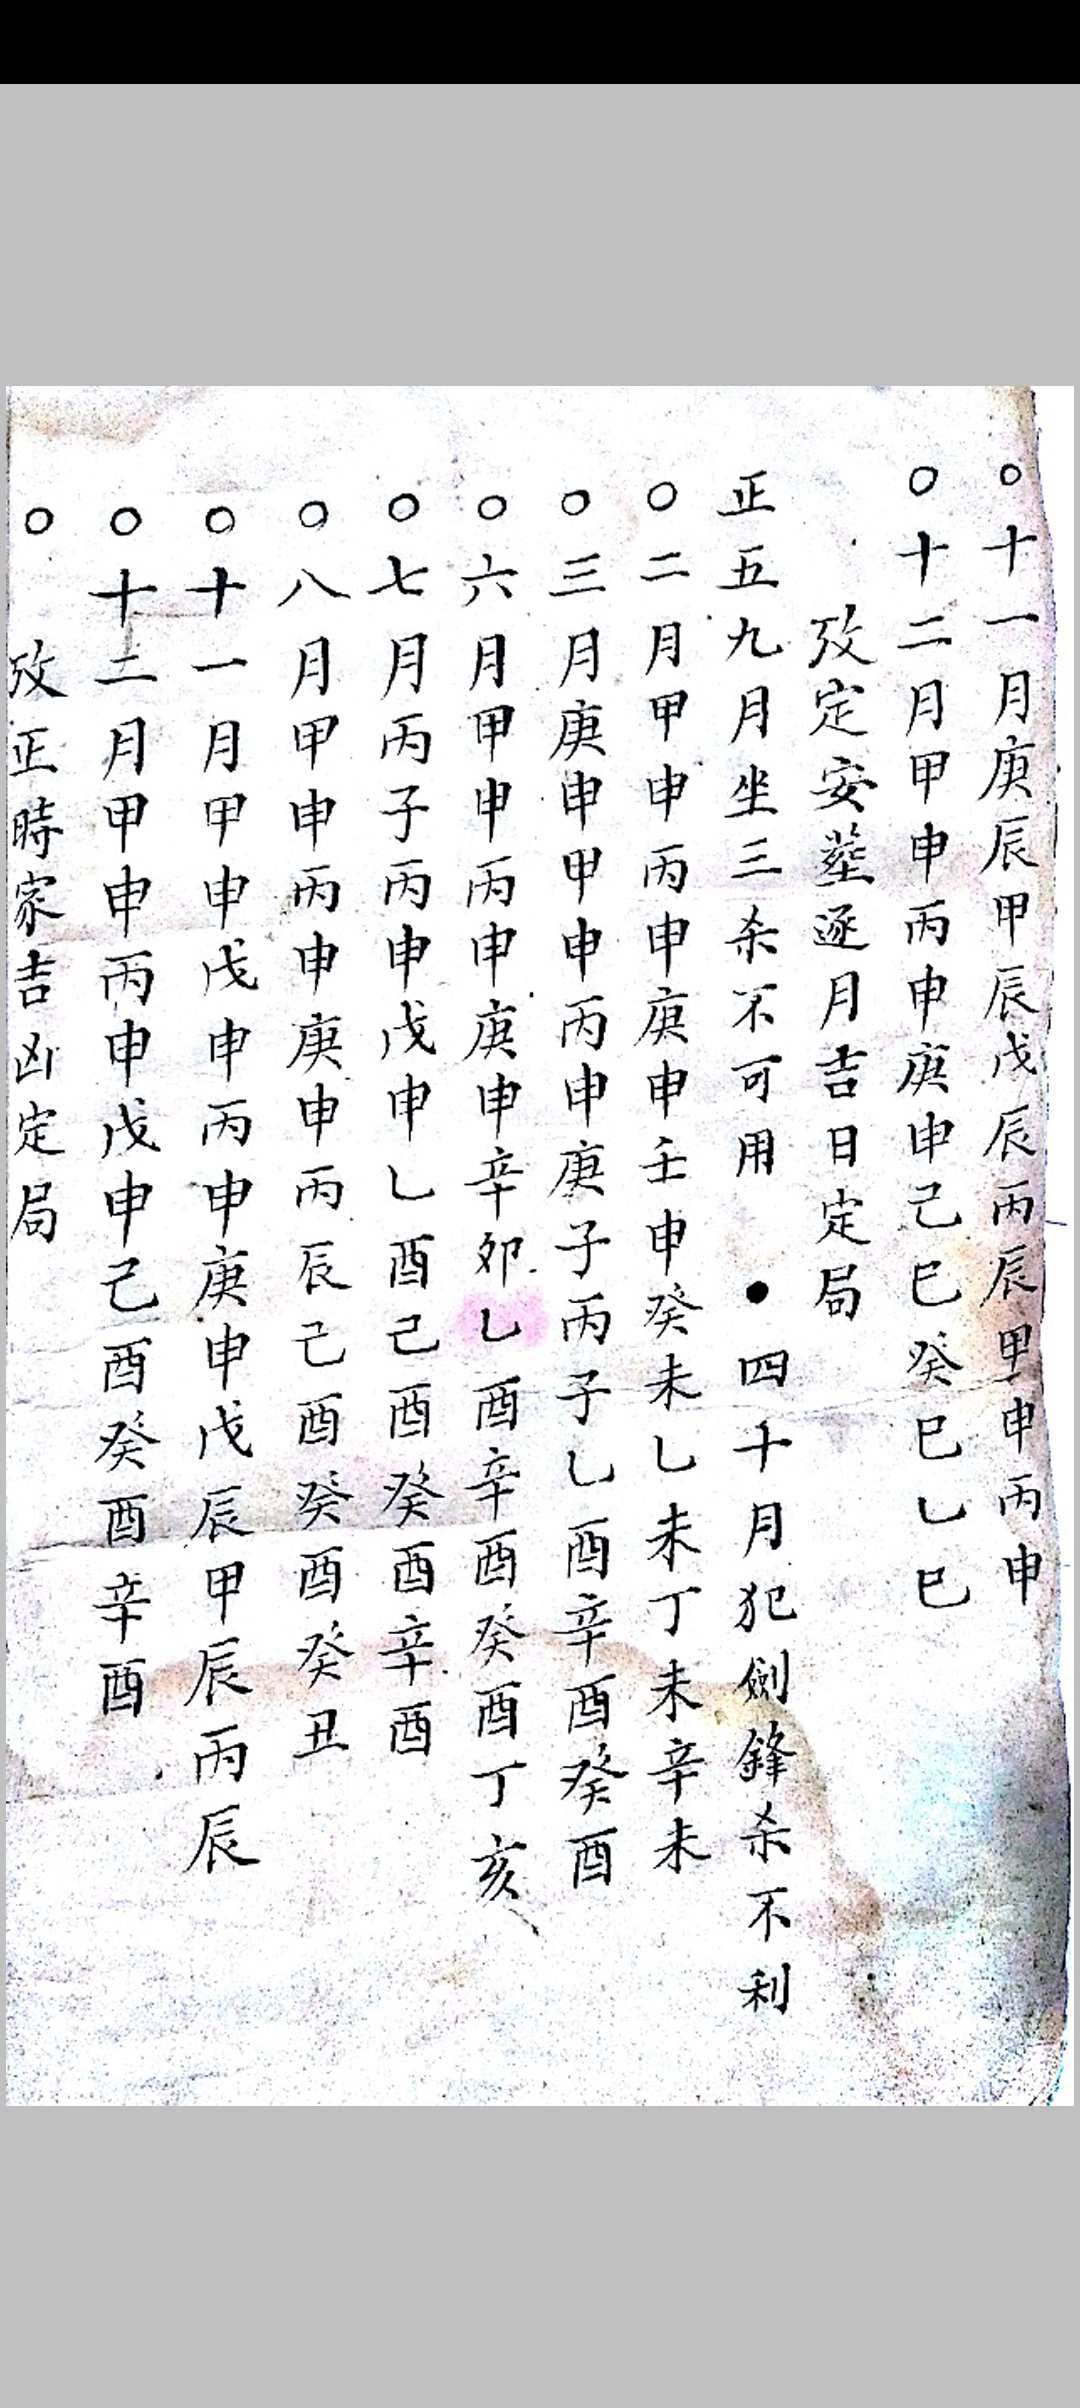 ○十一月庚辰甲辰戊辰丙辰甲申丙申
○十二月甲申丙申庚申己巳癸巳乙巳
攷定安塟逐月吉日定局
正五九月坐三杀不可用 ●四十月犯劍鋒杀不利
○二月甲申丙申庚申壬申癸未乙未丁未辛未
○三月庚申甲申丙申庚子丙子乙酉辛酉癸酉
○六月甲申丙申庚申辛卯乙酉辛酉癸酉丁亥
○七月丙子丙申戊申乙酉己酉癸酉辛酉
○八月甲申丙申庚申丙辰己酉癸酉癸丑
○十一月甲申戊申丙申庚申戊辰甲辰丙辰
○十二月甲申丙申戊申己酉癸酉辛酉
○攷正時家吉凶定局